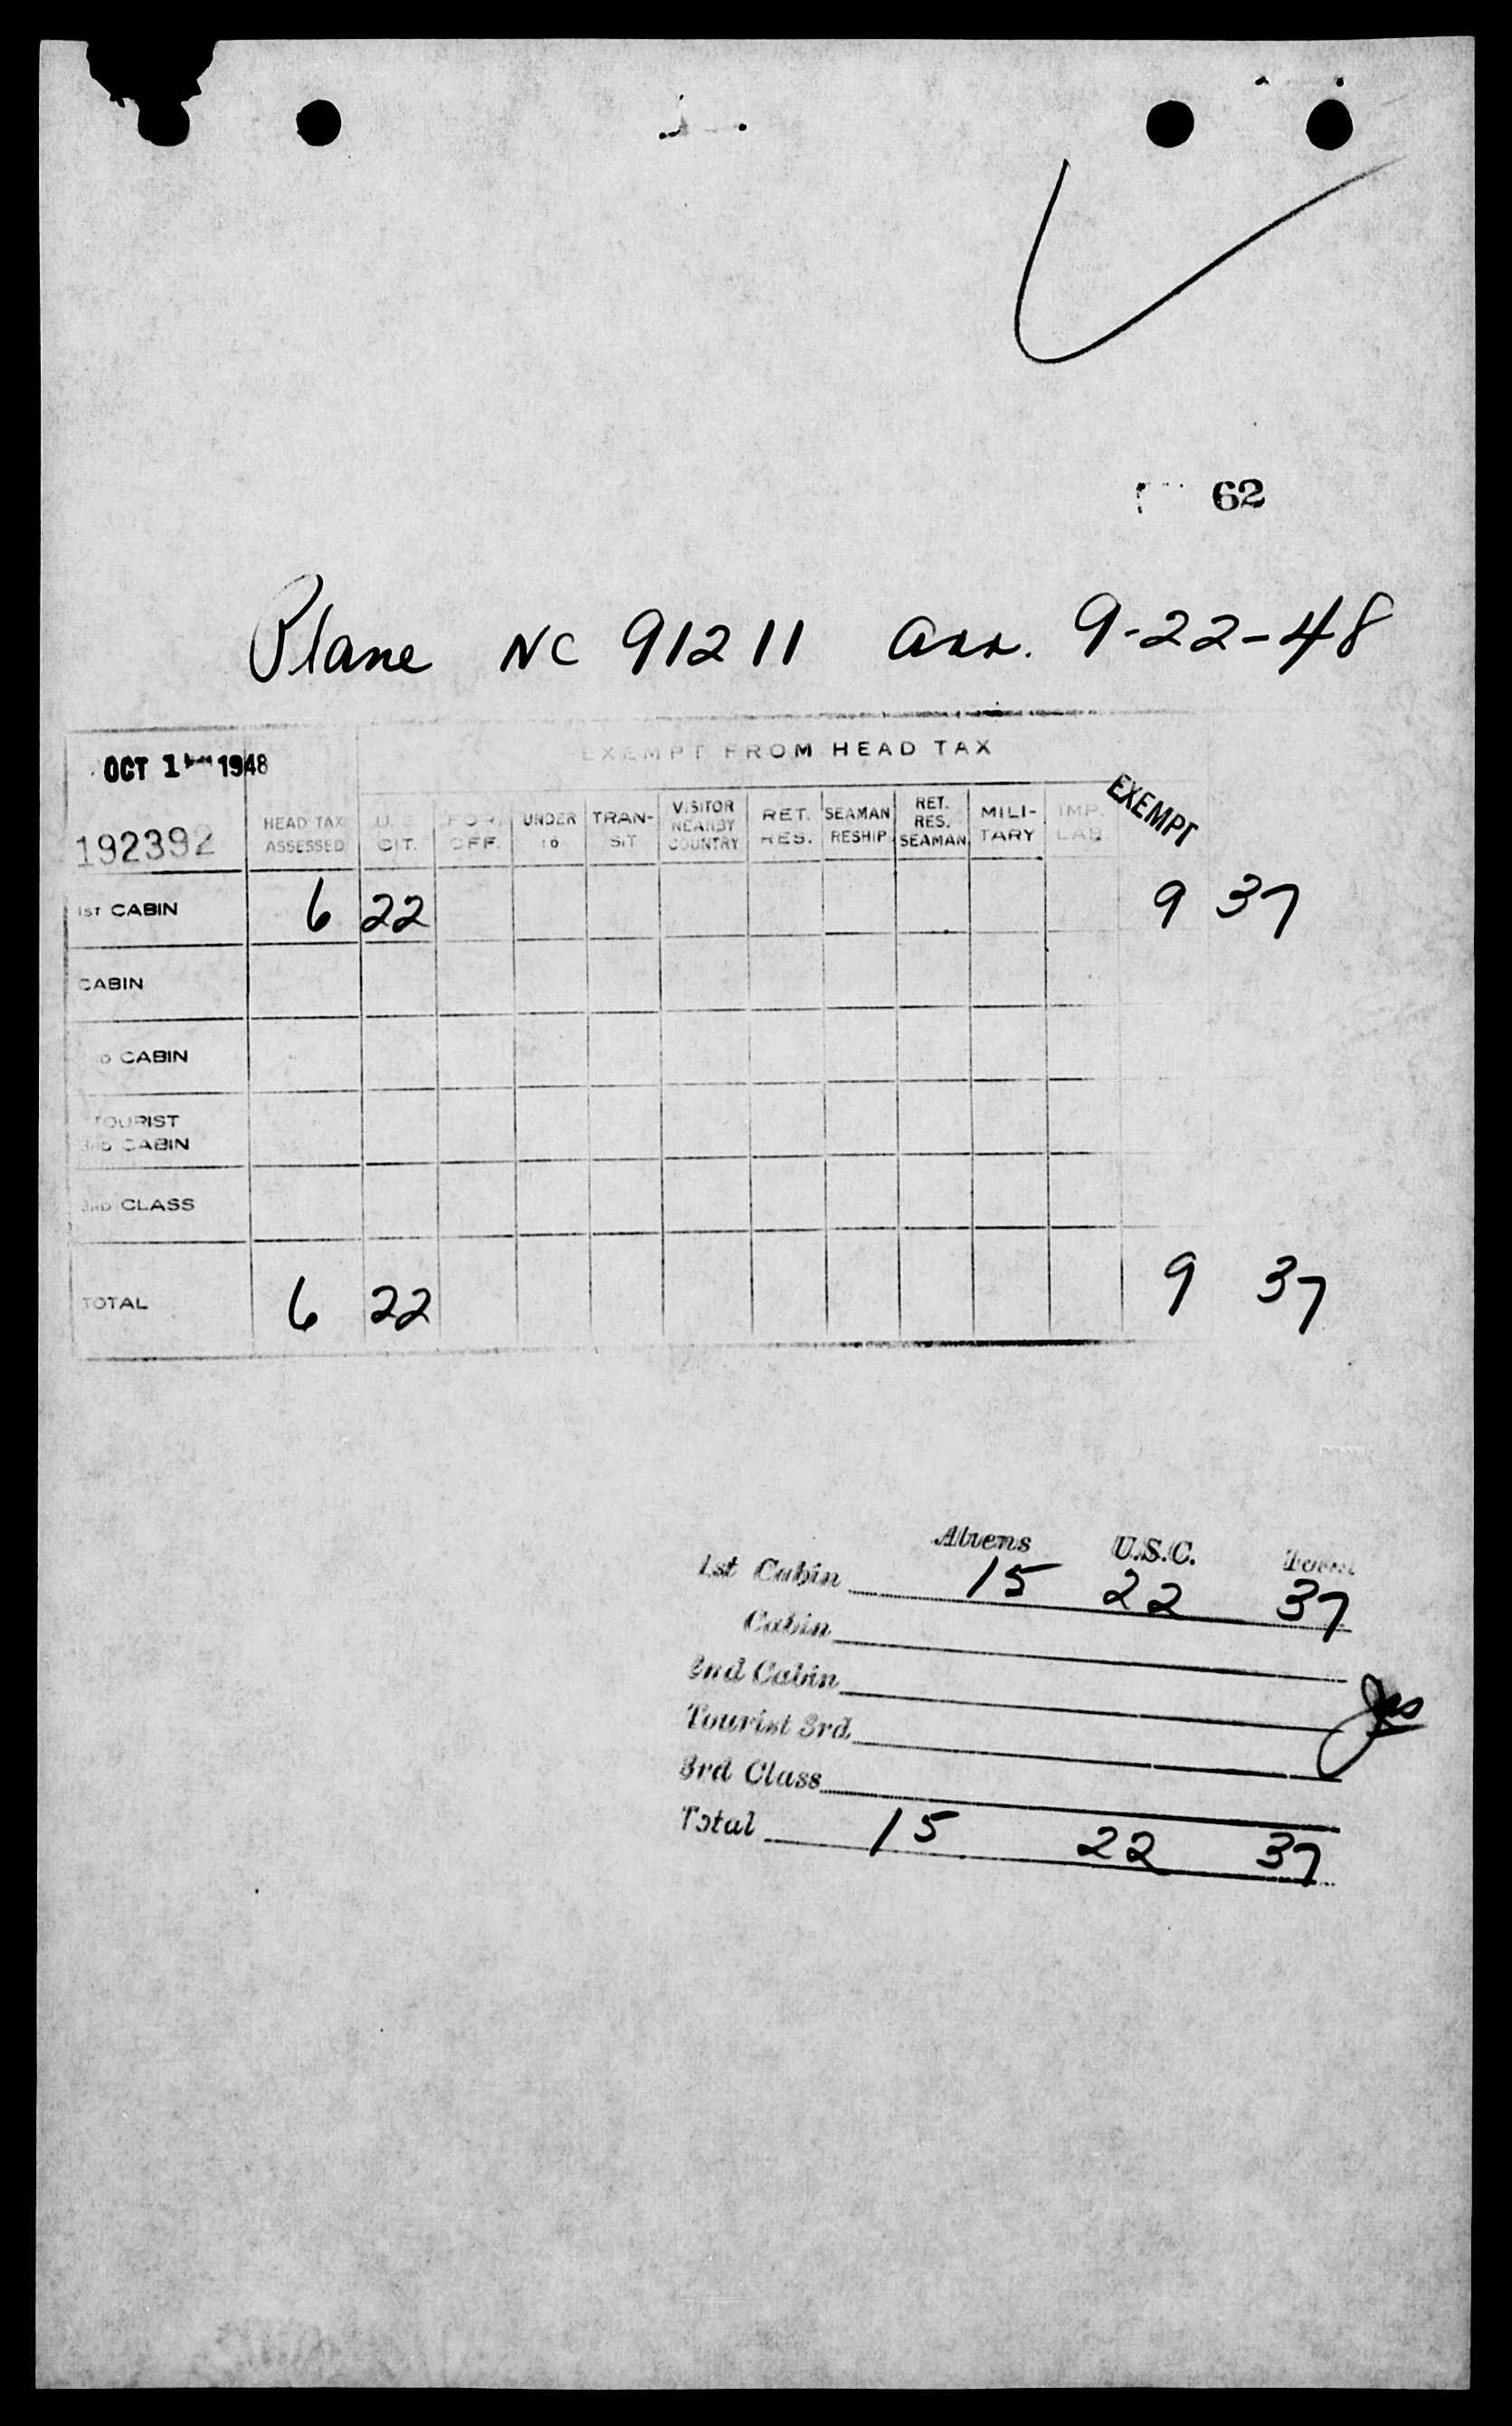 62
Plane NC 91211 arr. 9-22-48
EXEMPT FROM HEAD TAX
OCT 1 1948
192392
HEAD TAX ASSESSED
U.S. CIT.
FOR. OFF.
UNDER 16
TRAN-SIT
VISITOR NEARBY COUNTRY
RET. RES.
SEAMAN RESHIP
RET. RES. SEAMAN
MILI-TARY
IMP. LAB.
EXEMPT
1ST CABIN 6 22 9 37
CABIN
CABIN
TOURIST
3RD CABIN
3RD CLASS
TOTAL 6 22 9 37
Aliens U.S.C. Total
1st Cabin 15 22 37
Cabin
2nd Cabin
Tourist 3rd
3rd Class
Total 15 22 37